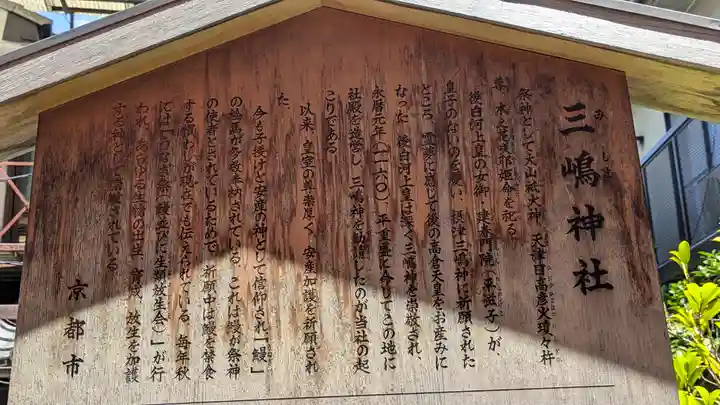 三嶋神社
み しま
祭神として大山祇大神、天津日高彦火瓊々杵
尊、木之花咲耶姫命を祀る。
後白河上皇の女御・建春門院(平滋子)が、
皇子のないのを憂い、摂津三嶋神に祈願された
ところ、霊夢に感じて後の高倉天皇をお産みに
なった。後白河上皇は深く三嶋神を崇敬され、
永暦元年(一一六〇)、平重盛に命じてこの地に
社殿を造営し、三嶋神を勧請したのが当社の起
こりである。
以来、皇室の尊崇厚く、安産加護を祈願され
た。
今も子授けと安産の神として信仰され「鰻」
の絵馬が多数奉納されている。これは鰻が祭神
の使者とされているためで、祈願中は鰻を禁食
する慣わしが現在でも伝えられている。毎年秋
には「うなぎ祭(鰻並びに生類放生会)」が行
われ、あらゆる生物の生王、育成、放生を加護
する神として崇敬されている。
京都市